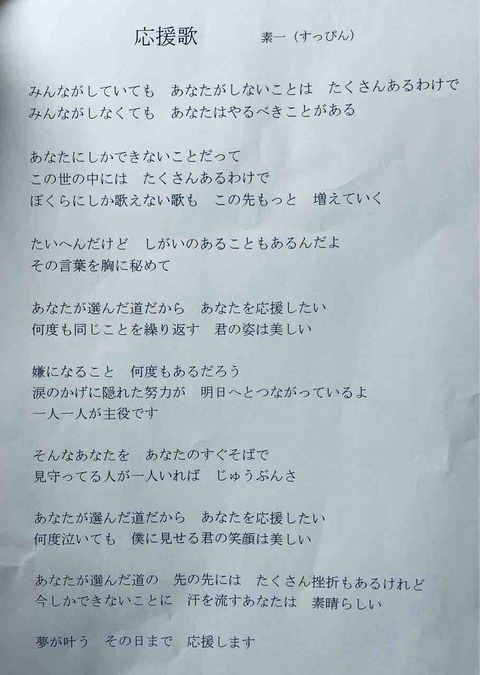 応援歌　　　素一（すっぴん）
みんながしていても　あなたがしないことは　たくさんあるわけで
みんながしなくても　あなたはやるべきことがある
あなたにしかできないことだって
この世の中には　たくさんあるわけで
ぼくらにしか歌えない歌も　この先もっと　増えていく
たいへんだけど　しがいのあることもあるんだよ
その言葉を胸に秘めて
あなたが選んだ道だから　あなたを応援したい
何度も同じことを繰り返す　君の姿は美しい
嫌になること　何度もあるだろう
涙のかげに隠れた努力が　明日へとつながっているよ
一人一人が主役です
そんなあなたを　あなたのすぐそばで
見守ってる人が一人いれば　じゅうぶんさ
あなたが選んだ道だから　あなたを応援したい
何度泣いても　僕に見せる君の笑顔は美しい
あなたが選んだ道の　先の先には　たくさん挫折もあるけれど
今しかできないことに　汗を流すあなたは　素晴らしい
夢が叶う　その日まで　応援します